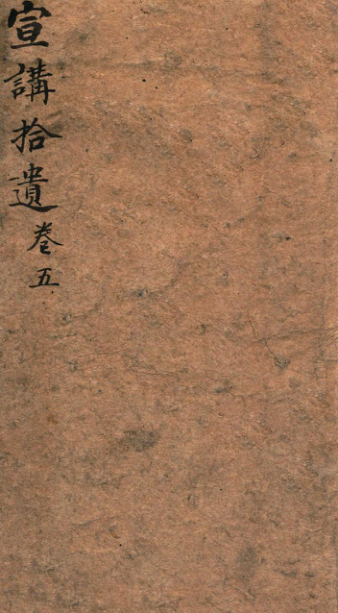 宣講拾遺卷五